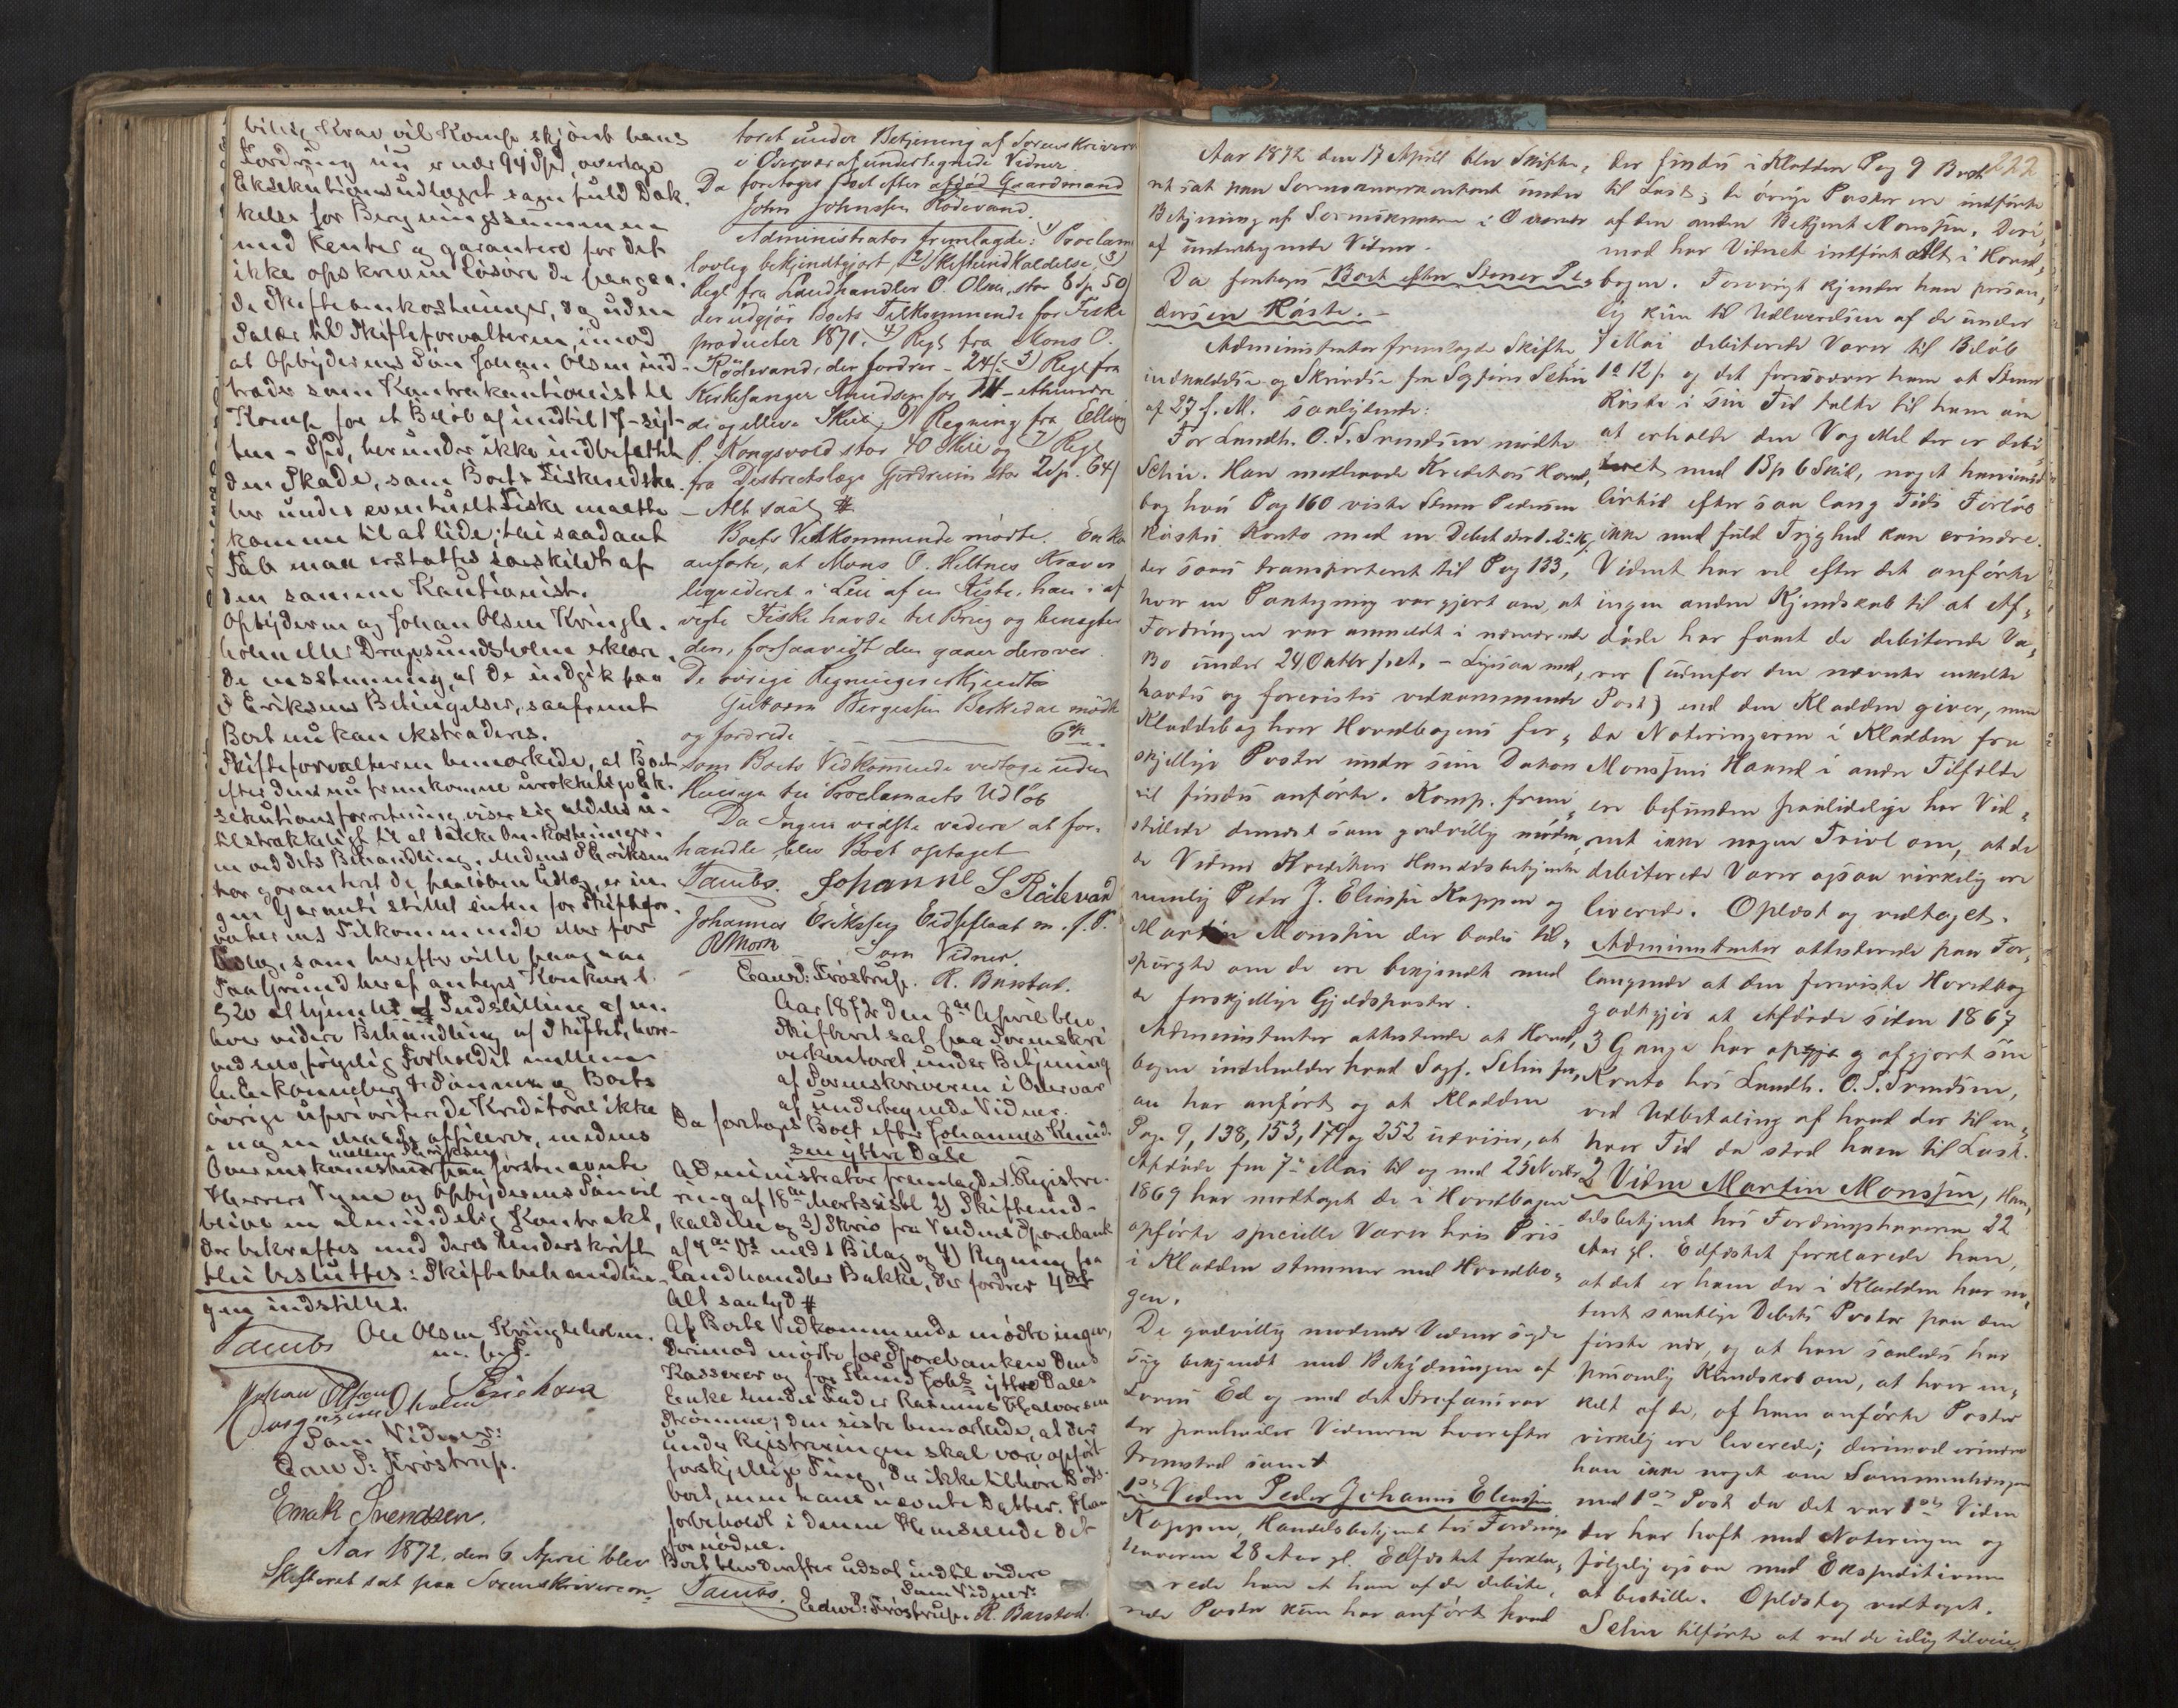 billig Krav vil Komp. skjönt hans
Fordring nu er nær 94 Spd, overtage
Eksekutionsudlægget sagn fuld Dæk-
kelse for Bergningssummen
med Renter og garantere for det
ikke opskrevne Løsøre de paagaa-
de Skifteomkostninger, dog uden
Salær til Skifteforvalteren, imod
at Opbyderens Søn Johan Olsen ind-
træder som Kontrakautionist til
Komp. for et Beløb af indtil 17 - syt-
ten - Spd, herunder ikke indbefattet
den Skade, som Boets Fiskeredska-
ber under eventuelt Fiske maatte
komme til at lide; thi saadant
Tab maa erstattes særskildt af
den samme Kautionist.
Opbyderen og Johan Olsen Kringle-
holm eller Dragsundsholm erklære-
de enstemmig, at de indgik paa
S Eriksens Betingelser, saafremt
Boet nu kan ekstraderes.
Skifteforvalteren bemærkede, at Boet
efter den nu fremkomne urokkelige Ek-
sekutionsforretning viser sig aldeles u-
tilstrækkeligt til at dække Omkostninger-
ne ved dets Behandling. Medens S Eriksen
har garanteret de paaløbne Udlæg, er in-
gen Garanti stillet enten for Skiftefor-
valterens Tilkommende eller for
Udlæg, som herefter ville paagaa
Paa Grund heraf antages Konkursl.
§20 at hjemle Indstilling af en-
hver videre Behandling af Skiftet, hvor-
ved ens følgelig Forholdet mellem
Enkemadame & Sønnen og Boets
øvrige uprioriterede Kreditorer ikke
i nogen Maade afficeres, medens
Overenskomsten mellem S Eriksen paa førstnævnte
Herrers Vegne og Opbyderens Søn vil
blive en almindelig Kontrakt,
der bekræftes med deres Underskrift
thi besluttes: Skiftebehandlin-
gen indstilles.
Tambs Ole Olsen Kringleholm.
m. f. P.
Johan Olsen S Erichsen
Dragsundholm
Som Vidner:
Edv. S: Trøstrup.
Enok Svendsen.
Aar 1872, den 6 April blev
Skifteret sat paa Sorenskriverkon-
toret under Betjening af Sorenskriveren
i Overvær af undertegnede Vidner
Da foretoges Boet efter afdød Gaardmand
John Johnssen Rødevand.
Administrator fremlagde: 1) Proclam
lovlig bekjendtgjort, 2) Skifteindkaldelse, 3)
Regl fra Landhandler O. Olsen, stor 6 Sp. 50
der udgjør Boets Tilkommende for Fiske
producter 1871. 4) Regl fra Mons O.
Rödevand, der fordrer - 24 s. 5) Regl fra
Kirkesanger Knudsen for 111 - ethundre
de og elleve Skill, 6) Regning fra Elling
P. Kongsvold stor 40 Skill og 7) Regl
fra Districtslæge Gjerdrum stor 2 Sp. 64 s
- Alt saal. #
Boets Vedkommende mødte. Enken
anførte, at Mons O. Heltnes Krav er
liqvideret i Leie af en Kiste, han i af
vigte Fiske havde til Brug og benegter
den, forsaavidt den gaaer derover.
De øvrige Regninger erkjendtes
Guttorm Bergessen Berkedal mødte
og fordrede 6 sp
som Boets Vedkommende vedtoge uden
Hensyn til Proclamaets Udløb
Da Ingen vidste videre at for-
handle, blev Boet optaget
Tambs. Johanne S Rödevand
Johannes Erikssen Eidsflaat m. f. P.
Som Vidner.
Edvard: Trøstrup. R. Barstad.
Aar 1872 den 8de April blev
Skifteret sat paa Sorenskri
verkontoret under Betjening
af Sorenskriveren i Overvær
af undertegnede Vidner.
Da foretoges Boet efter Johannes Knud-
sen yttre Dale
Administrator fremlagde 1) Registre-
ring af 18de Marts sidstl 2) Skifteind-
kaldelse og 3) Skriv fra Voldens Sparebank
af 4de ds med 1 Bilag og 4) Regning fra
Landhandler Bakke, der fordrer 4
Alt saalyd #
Af Boets Vedkommende mødte ingen,
derimod mødte for Sparebanken dens
Kasserer og for Knud Johs yttre Dales
Enke hendes Fader Rasmus Halvorsen
Strømme; den sidste bemærkede, at der
under Registreringen skal være opført
forskjellige Ting, der ikke tilhøre Døds-
boet, men hans nævnte Datter. Han
forbeholdt i denne Henseende det
fornødne.
Boet blev derefter udsat indtil videre
Tambs. Som Vidner:
Edvd: Trøstrup. R. Barstad.
222
Aar 1872 den 17 April blev Skifte-
ret sat paa Sorenskriverkontoret under
Betjening af Sorenskriveren i Overvær
af undertegnede Vidner.
Da foretoges Boet efter Stener Pe-
dersen Røste. -
Administrator fremlagde Skifte
indkaldelse og Skrivelse fra Sagfører Schie
af 27 f. M. saalydende:
For Landh. O. S. Svendsen mødte
Schie. Han medhavde Kreditors Hoved-
bog hvis Pag 160 viste Stener Pedersen
Røstes Konto med en Debet
der saaes transporteret til Pag 133,
hvor en Paategning var gjort om, at
Fordringen var anmeldt i nærværende
Bo under 24 Oktbr f. A. - Ligesaa med-
havdes og foreviistes vedkommende
Kladdebog hvor Hovedbogens for-
skjellige Poster under sine Datoer
vil findes anførte. Komp. frem-
stillede dernæst som godvillig møden-
de Vidner Kreditors Handelsbetjente
nemlig Peder J. Eliassen Koppen og
Martin Monssen der bades til-
spurgte om de ere bekjendt med
de forskjellige Gjeldsposter.
Administrator attesterede at Hoved-
bogen indeholder hvad Sagf. Schie for-
an har anført og at Kladden
Pag. 9, 138, 153, 179 og 252 udviser, at
Afdøde fra 7de Mai til og med 25 Novbr
1869 har modtaget de i Hovedbogen
opførte specielle Varer hvis Pris
i Kladden stemmer med Hovedbo-
gen.
De godvillig mødende Vidner sagde
sig bekjendt med Betydningen af
Lovens Ed og med det Strafansvar
der paahviler Vidnerne hvorefter
fremstod som
1ste Vidne Peder Johannes Eliassen
Koppen, Handelsbetjent hos Fordrings
haveren 28 Aar gl. Edfæstet forkla-
rede han at han af de debite-
rede Poster kun har anført hvad
der findes i Kladden Pag 9 Boet
til Last; de øvrige Poster ere indførte
af den anden Betjent Monssen. Deri-
mod har Vidnet indført Alt i Hoved-
bogen. Forøvrigt kjender han person-
lig kun til Udleverelsen af de under
7 Mai debiterede Varer til Beløb
og det forekommer ham at Stener
Røste i sin Tid talte til ham om
at erholde den Vog Mel der er debi-
teret med 1 Sp 6 Skil, noget han imid-
lertid efter saa lang Tids Forløb
ikke med fuld Tryghed kan erindre.
Vidnet har vel efter det anførte
ingen anden Kjendskab til at Af-
døde har faaet de debiterede Va-
rer (udenfor den nævnte enkelte
Post) end den Kladden giver, men
da Noteringerne i Kladden fra
Monssens Haand i andre Tilfælde
ere befundne paalidelige har Vid-
net ikke nogen Tvivl om, at de
debiterede Varer ogsaa virkelig ere
leverede. Oplæst og vedtaget.
Administrator attesterede paa For-
langende at den foreviste Hovedbog
godtgjør at Afdøde siden 1867
3 Gange har opgjort og afgjort sin
Konto hos Landh. O. S. Svendsen,
ved Udbetaling af hvad der til en-
hver Tid da stod ham til Last.
2 Vidne Martin Monssen, Han-
delsbetjent hos Fordringshaveren 22
Aar gl. Edfæstet forklarede han,
at det er ham der i Kladden har no-
teret samtlige Debets Poster paa den
første nær, og at han saaledes har
personlig Kundskab om, at hver en-
kelt af de, af ham anførte Poster
virkelig ere leverede; derimod erindrer
han ikke noget om Sammenhængen
med 1ste Post da det var 1ste Vidne
der har havt med Noteringen og
følgelig ogsaa med Expeditionen
at bestille. Oplæst og vedtaget.
Schie tilførte at ved de idag tilveie-